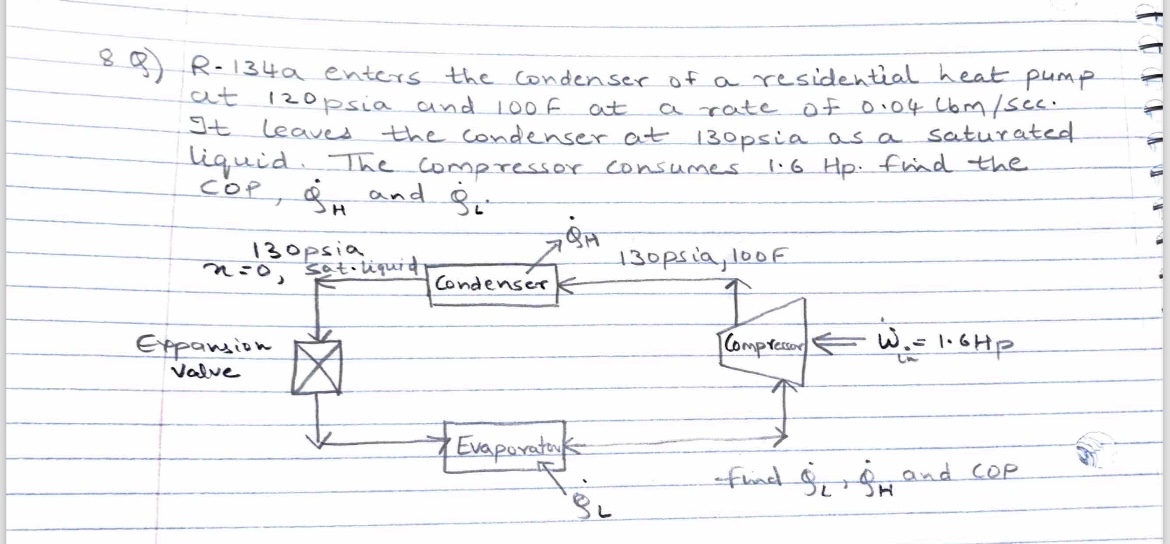 8 Q) R-134a enters the condenser of a residential heat pump
at 120psia and 100F at a rate of 0.04 lbm/sec.
It leaves the condenser at 130psia as a saturated
liquid. The compressor consumes 1.6 Hp. find the
COP, Q̇H and Q̇L.
Q̇H
130psia
x=0, sat. liquid
Condenser
130psia, 100F
Expansion
valve
Compressor
Ẇin = 1.6Hp
Evaporator
find Q̇L, Q̇H and COP
Q̇L